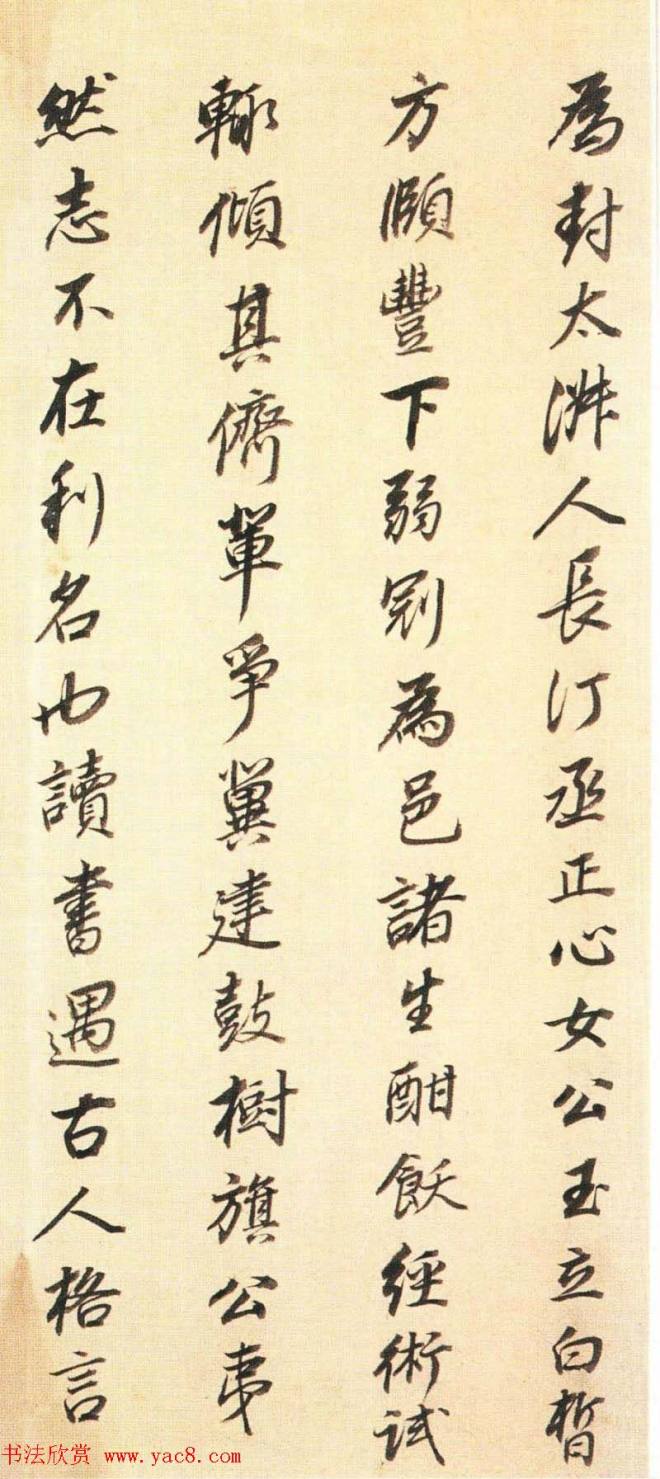 為封太淑人長汀丞正心女公玉立白皙
方頤豐下弱冠為邑諸生酣飫經術試
輒傾其儕輩爭冀建鼓樹旗公夷
然志不在利名也讀書遇古人格言
书法欣赏 www.yac8.com